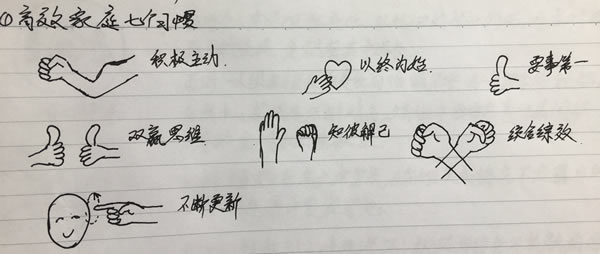 ① 高效家庭七个习惯
积极主动.
以终为始.
要事第一
双赢思维
知彼解己
综合综效
不断更新